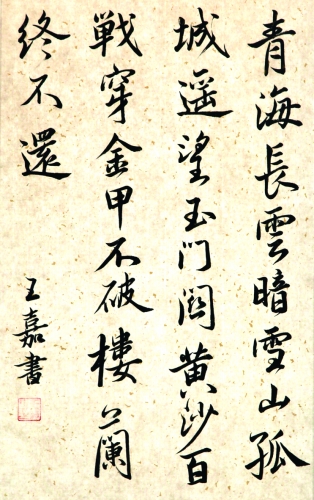 青海長雲暗雪山孤
城遥望玉門関黄沙百
戦穿金甲不破樓蘭
終不還
王嘉書